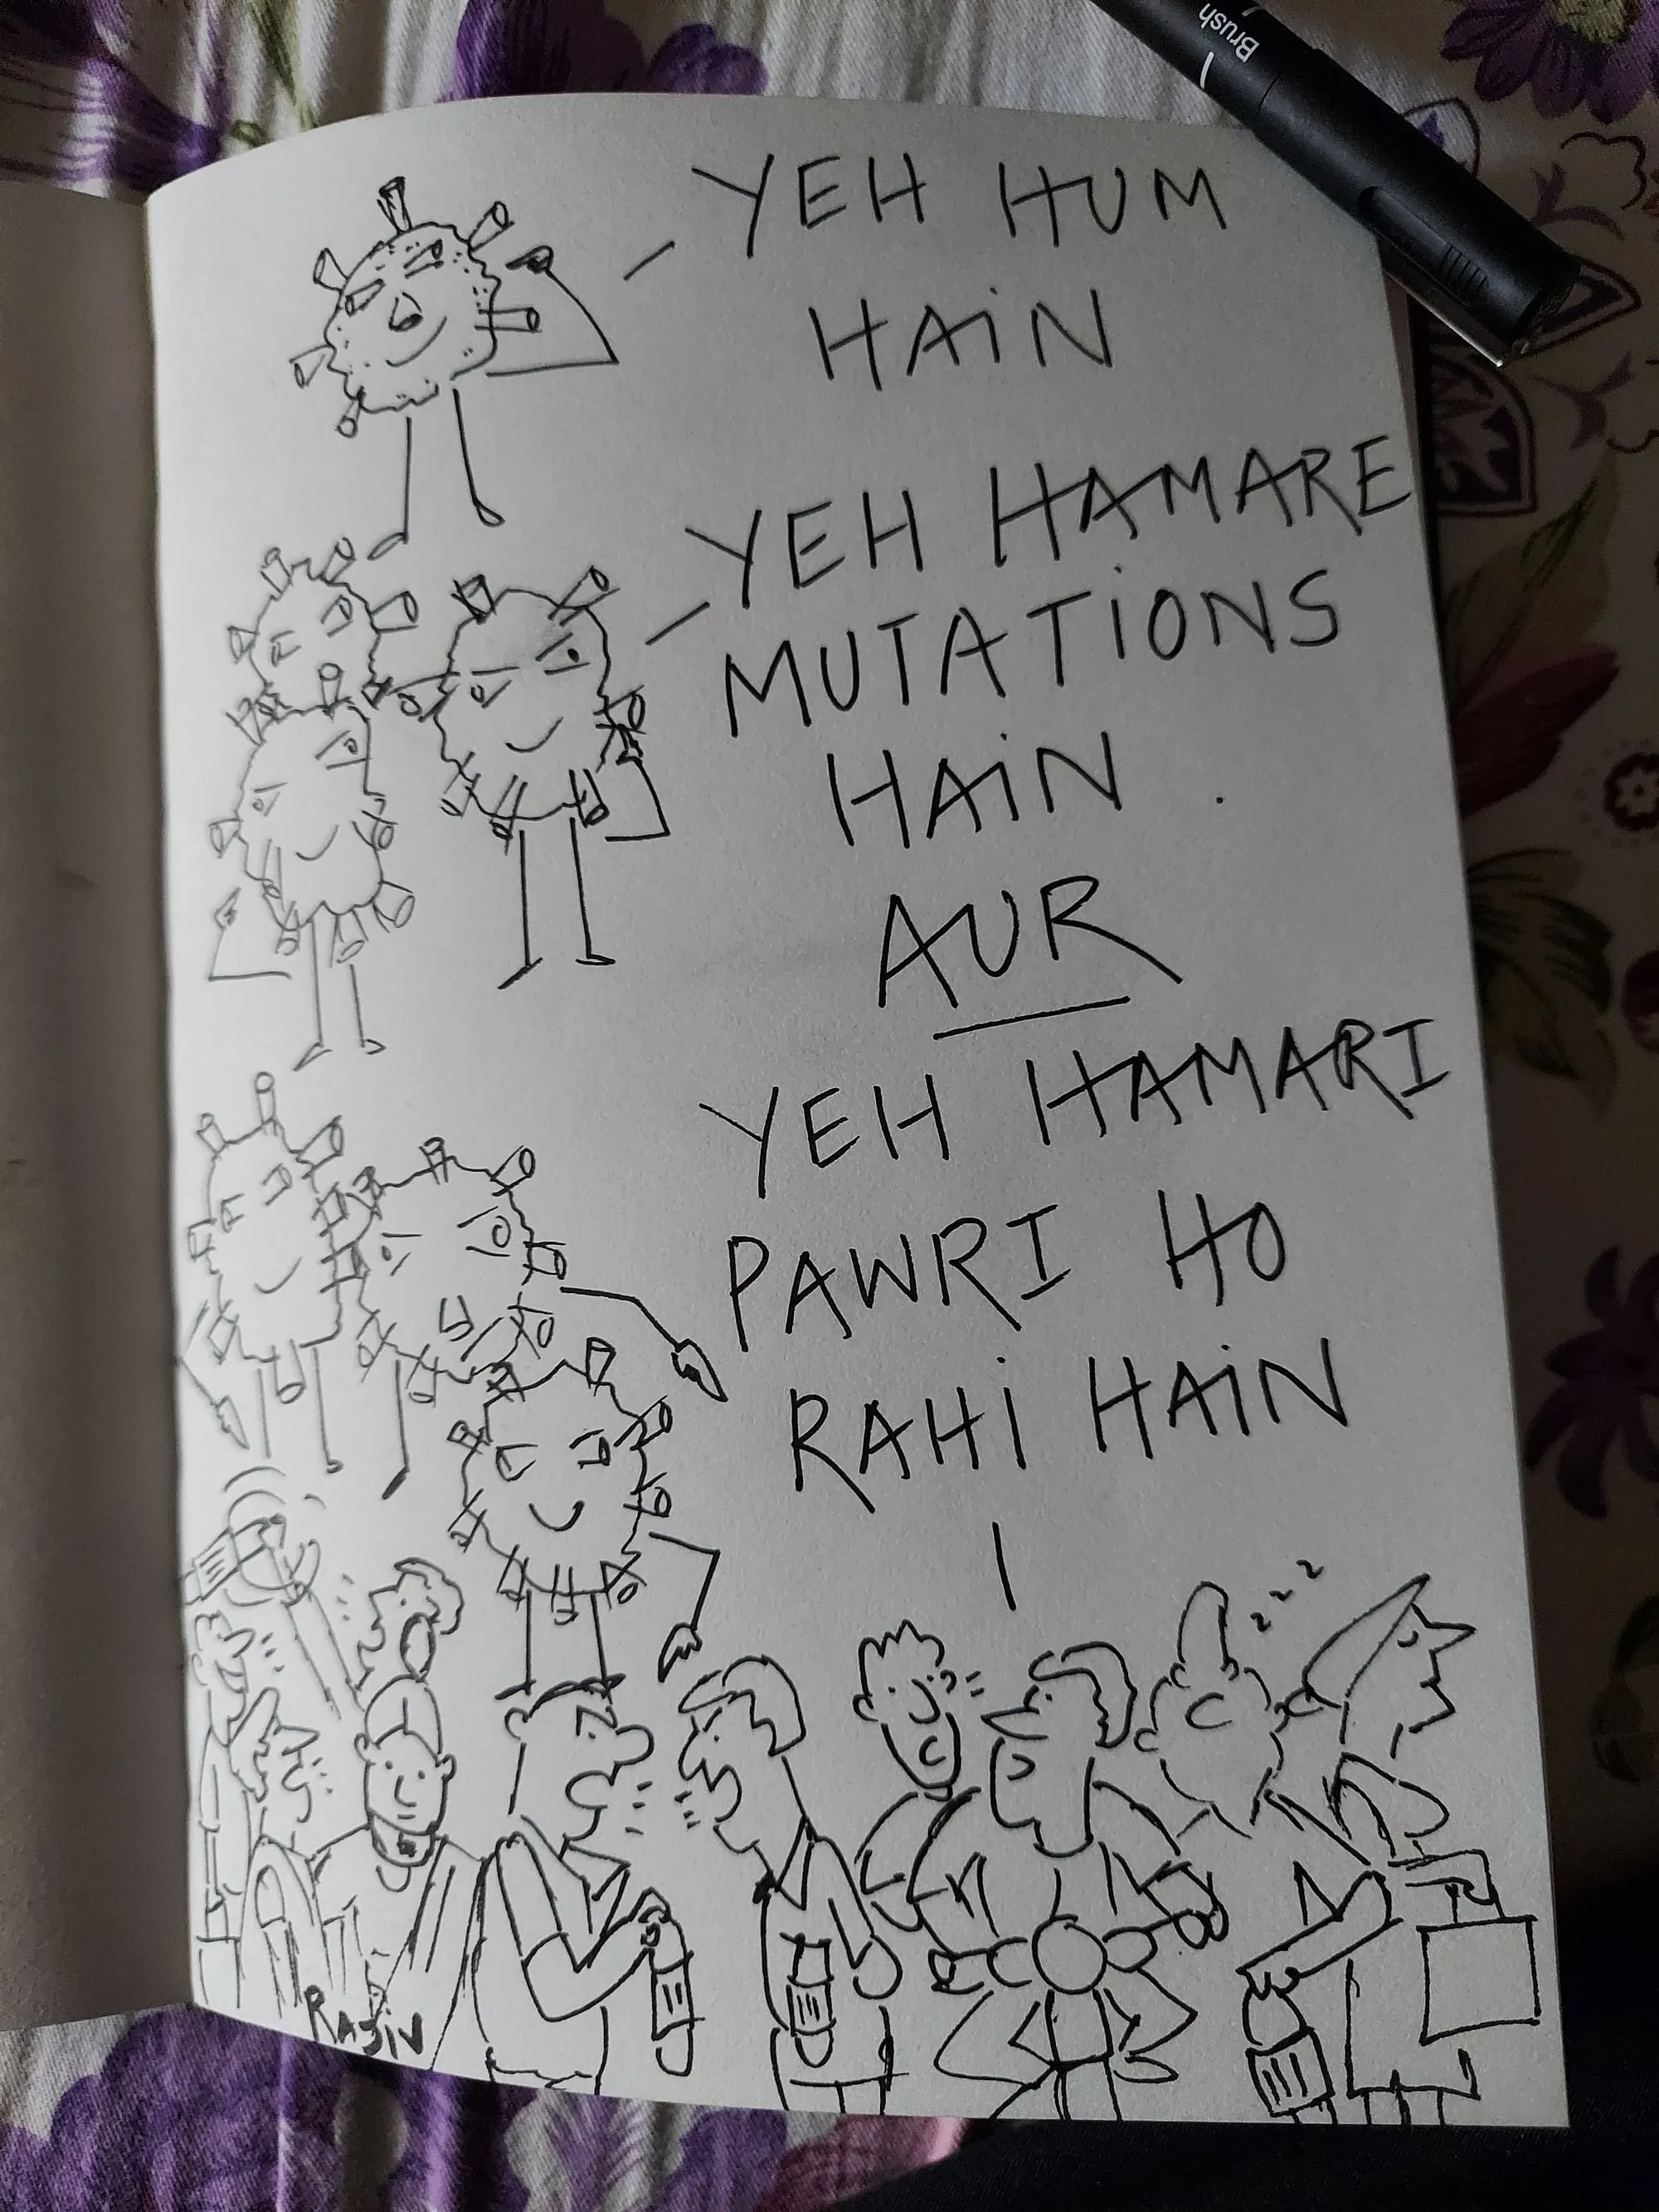 Brush
YEH HUM
HAiN
YEH HAMARE
MUTATiONS
HAiN.
AUR
YEH HAMARI
PAWRI HO
RAHi HAiN
zzz
RAJiV